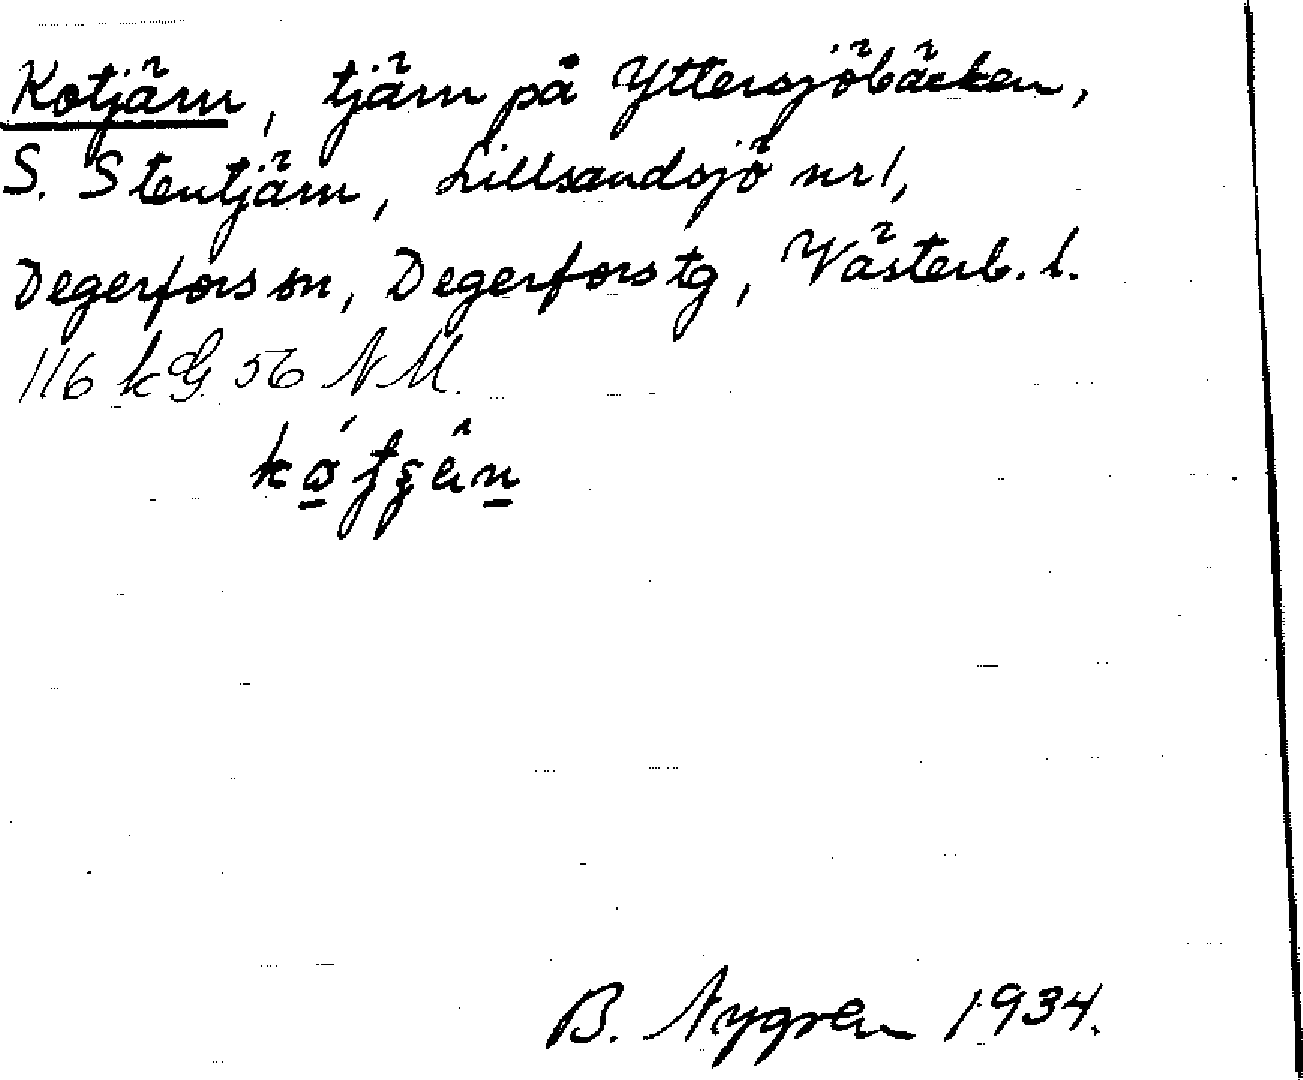 Kotjärn, tjärn på Yttersjöbäcken,
S. Stentjärn, Lillsandsjö nr 1,
Degerfors sn, Degerfors tg, Västerb. l.
116 k G. 56 N M.
B. Nygren 1934.